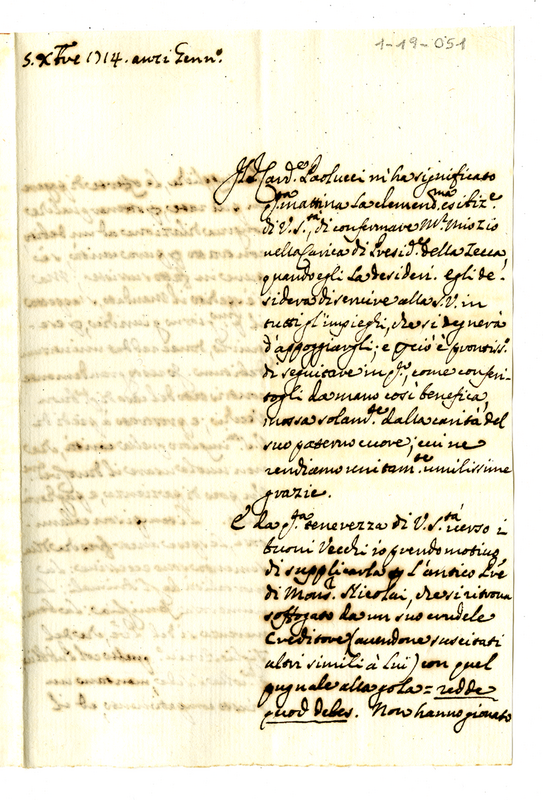 1-19-051
5. Xbre 1714.
Il Card.e Paolucci m'ha significato
q.ta mattina la clemend.ma esibiz.e
di V. S.tà, di confermare M.r Miozio
nella Carica di Presid.e della Zecca,
quando egli la desideri. egli de-
sidera di servire alla S. V. in
tutti gl'impieghi, che si degnerà
d'appoggiargli; e p ciò è prontiss.o
di seguitare in q.to, come conferi-
togli da mano così benefica,
mossa solam.te dalla carità del
suo paterno cuore; cui ne
rendiamo unitam.te umilissime
grazie.
E da q.ta tenerezza di V. S.tà verso i
buoni Vecchi io prendo motivo
di supplicarla p l'antico
di Mons.r Nicolai, che si ritrova
soffogato da un suo crudele
Creditore (avendone suscitati
altri simili à Lui) con quel
pugnale alla gola = redde
quod debes. Non hanno giovato